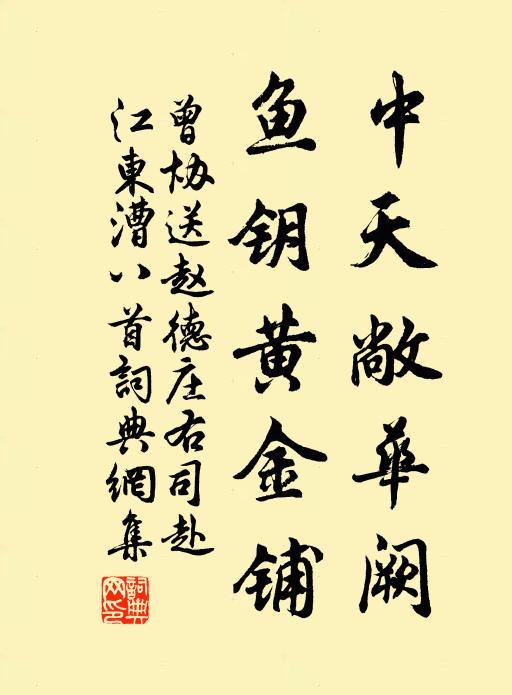 中天敞华阙
鱼钥黄金铺
曾协送赵德庄右司赴
江東漕八首詞典網集
詞典網印